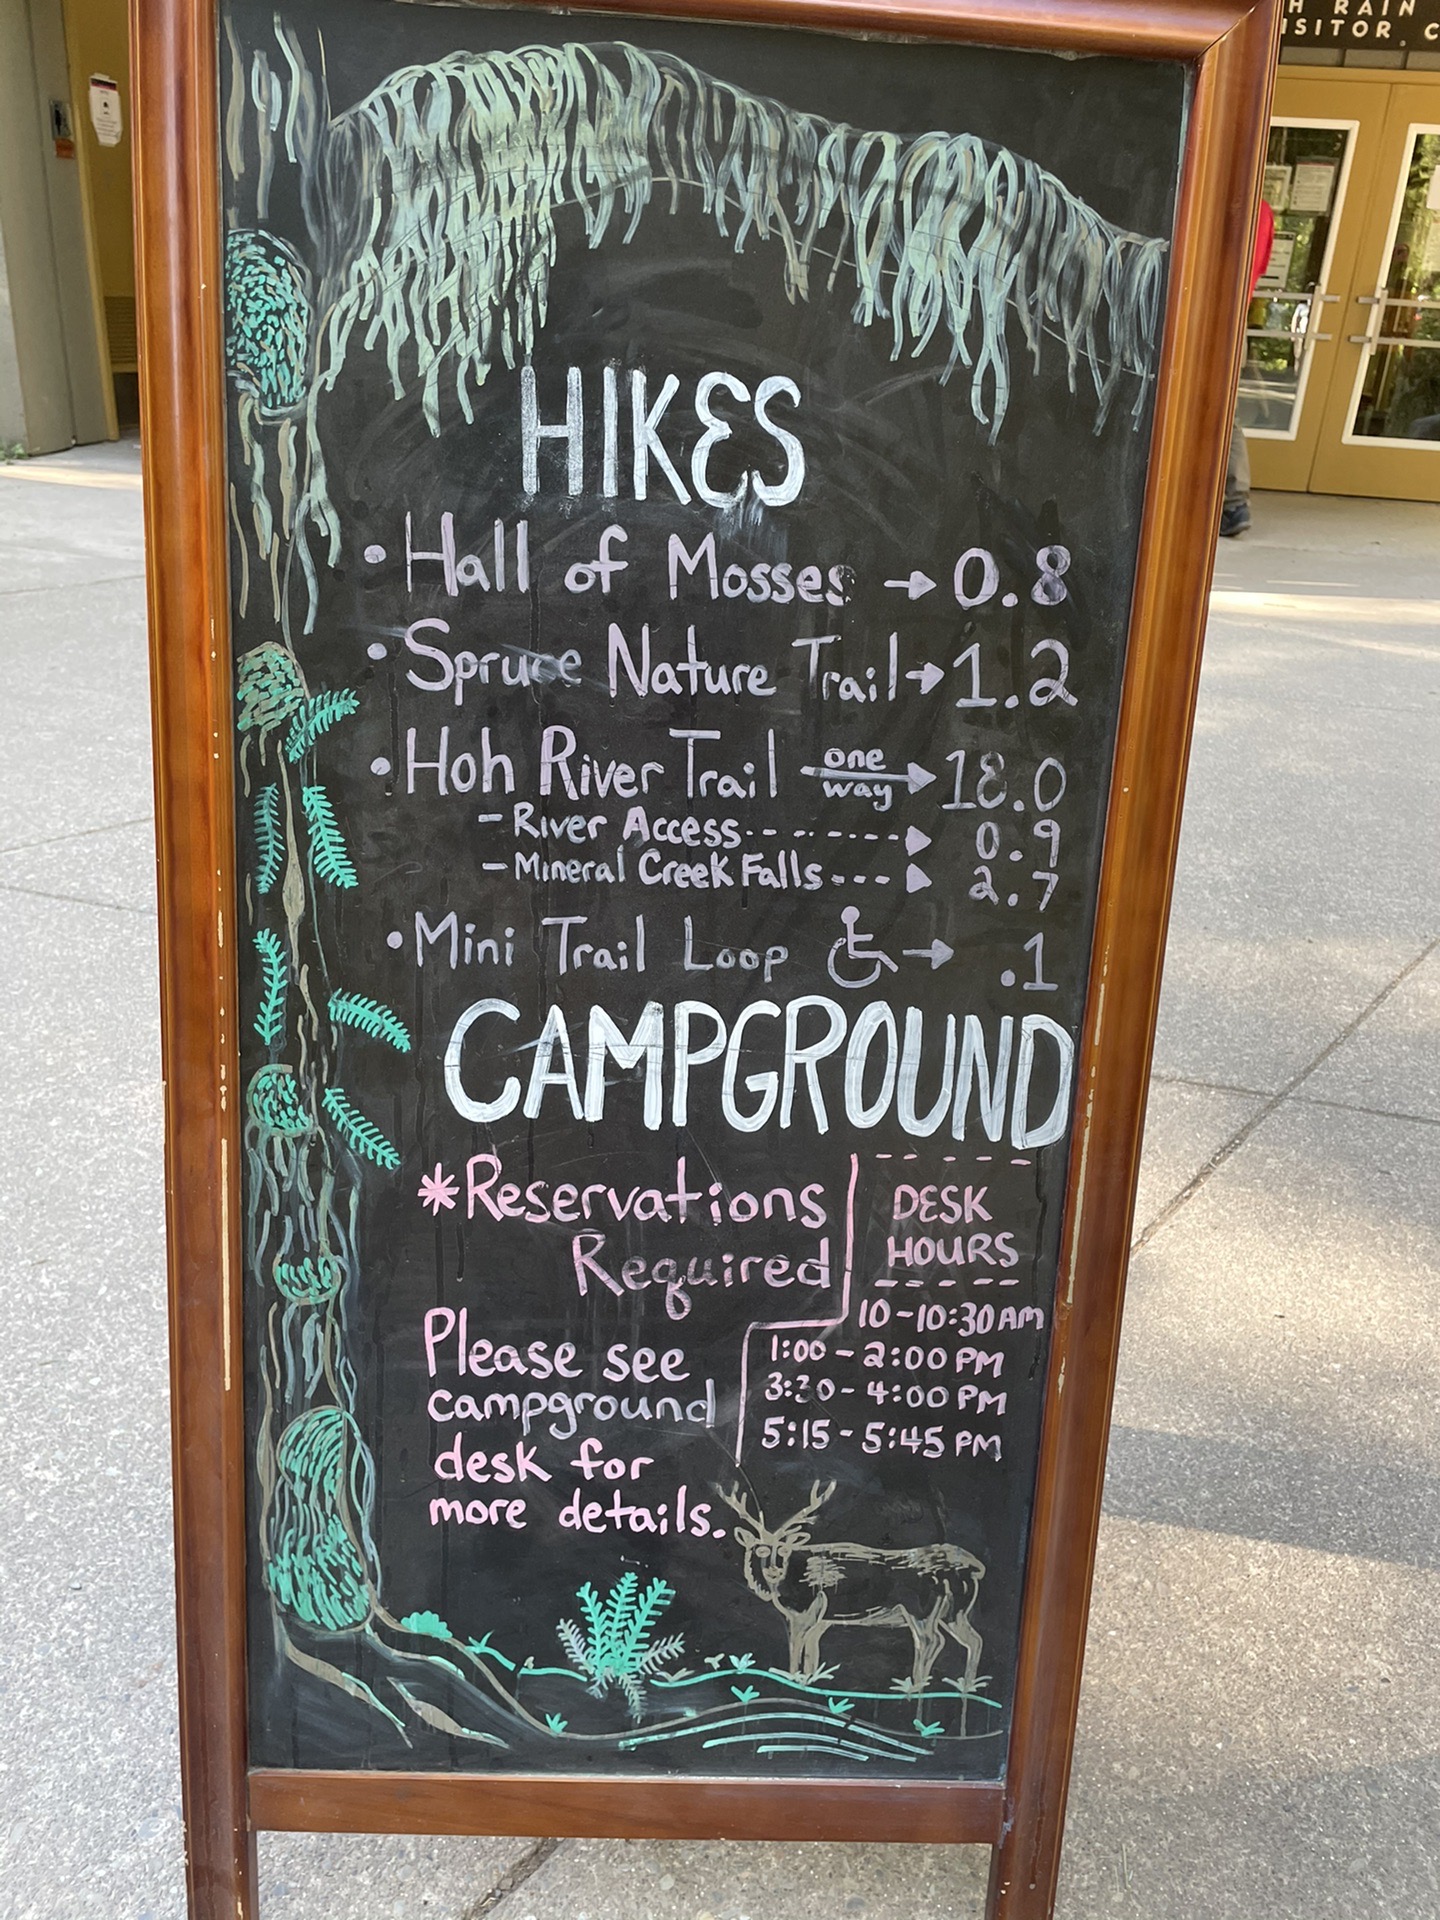 H RAIN
ISITOR C
HIKES
• Hall of Mosses → 0.8
• Spruce Nature Trail → 1.2
• Hoh River Trail one way → 18.0
- River Access -------▶ 0.9
- Mineral Creek Falls ---▶ 2.7
• Mini Trail Loop ♿ → .1
CAMPGROUND
*Reservations
Required
Please see
campground
desk for
more details.
DESK
HOURS
10-10:30 AM
1:00-2:00 PM
3:30-4:00 PM
5:15-5:45 PM